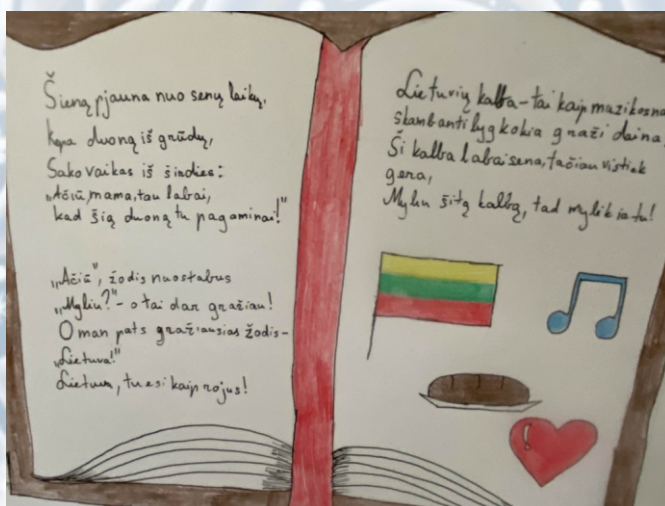 Šieną pjauna nuo senų laikų,
Kepa duoną iš grūdų,
Sako vaikas iš širdies:
"Ačiū, mama, tau labai,
kad šią duoną tu pagaminai!"
„Ačiū", žodis nuostabus
„Myliu?" - o tai dar gražiau!
O man pats gražiausias žodis -
„Lietuva!"
Lietuva, tu esi kaip rojus!
Lietuvių kalba - tai kaip muzikos
skambanti lyg kokia graži daina,
Ši kalba labai sena, tačiau vistiek
gera,
Myliu šitą kalbą, tad mylėk ia tu!